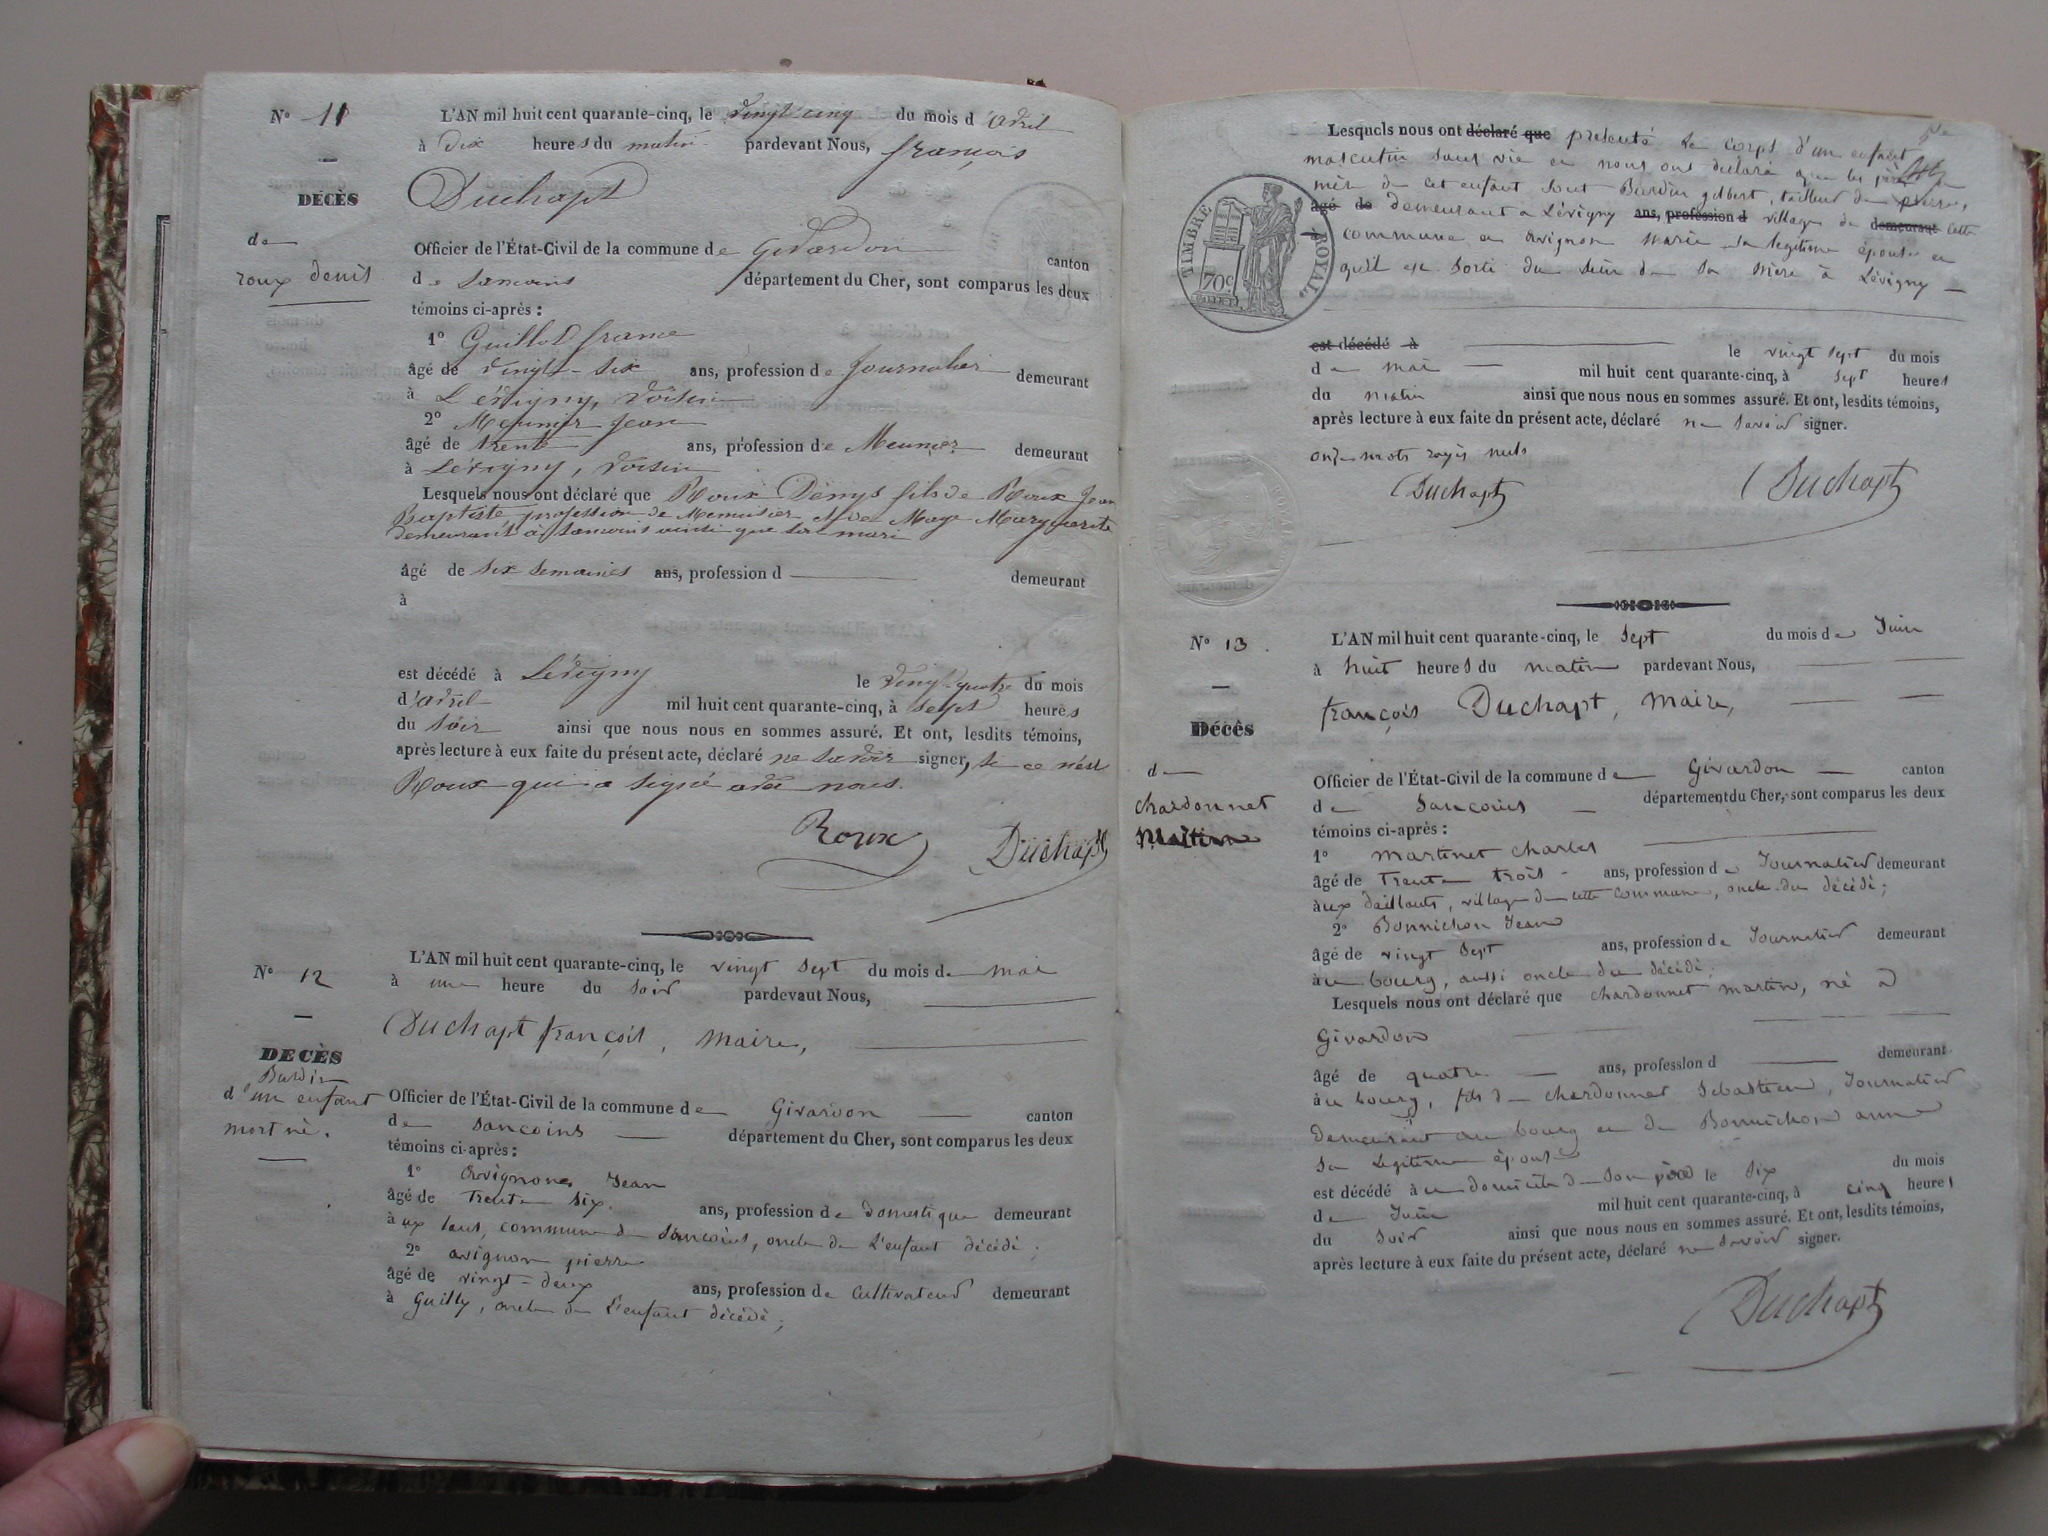 N° 11
DÉCÈS
de
roux denis
L'AN mil huit cent quarante-cinq, le vingt cinq du mois d'avril
à dix heures du matin pardevant Nous, françois
Duchapt
Officier de l'État-Civil de la commune de Givardon canton
de Sancoins département du Cher, sont comparus les deux
témoins ci-après :
1° Guillot
âgé de vingt-six ans, profession de journalier demeurant
à Lévigny, voisin
2° Meunier Jean
âgé de trente ans, profession de Meunier demeurant
à Lévigny, voisin
Lesquels nous ont déclaré que Roux Denys fils de Roux Jean
Baptiste profession de Menuisier et de Marguerite
demeurant à Sancoins ainsi que son mari
âgé de six semaines ans, profession d demeurant
à
est décédé à Lévigny le vingt-quatre du mois
d'avril mil huit cent quarante-cinq, à sept heures
du soir ainsi que nous nous en sommes assuré. Et ont, lesdits témoins,
après lecture à eux faite du présent acte, déclaré ne savoir signer, si ce n'est
Roux qui a signé avec nous.
Roux Duchapt
N° 12
DECÈS
Bardin
d'un enfant
mort né.
L'AN mil huit cent quarante-cinq, le vingt sept du mois de mai
à une heure du soir pardevant Nous,
Duchapt françois, maire,
Officier de l'État-Civil de la commune de Givardon canton
de Sancoins département du Cher, sont comparus les deux
témoins ci-après :
1° avignon Jean
âgé de Trente six. ans, profession de domestique demeurant
à commune de Sancoins, oncle de l'enfant décédé ;
2° avignon pierre
âgé de vingt-deux ans, profession de cultivateur demeurant
à Guilly, oncle de l'enfant décédé ;
Lesquels nous ont déclaré que présenté le corps d'un enfant
masculin sans vie et nous ont déclaré que les père et
mère de cet enfant sont Bardin gilbert, tailleur de pierre,
âgé de demeurant à Lévigny ans, profession d village de demeurant cette
à commune et avignon marie sa légitime épouse et
qu'il est sorti du sein de sa mère à Lévigny
TIMBRE ROYAL.
70c
est décédé à le vingt sept du mois
de mai mil huit cent quarante-cinq, à sept heures
du matin ainsi que nous nous en sommes assuré. Et ont, lesdits témoins,
après lecture à eux faite du présent acte, déclaré ne savoir signer.
onze mots rayés nuls
Duchapt Duchapt
N° 13.
Décès
de
chardonnet
Martin
L'AN mil huit cent quarante-cinq, le sept du mois de Juin
à huit heures du matin pardevant Nous,
françois Duchapt, maire,
Officier de l'État-Civil de la commune de Givardon canton
de Sancoins département du Cher, sont comparus les deux
témoins ci-après :
1° martinet charles
âgé de trente trois ans, profession de Journalier demeurant
aux daillants, village de cette commune, oncle du décédé ;
2° Bonnichon Jean
âgé de vingt sept ans, profession de Journalier demeurant
au bourg, aussi oncle du décédé ;
Lesquels nous ont déclaré que chardonnet martin, né à
Givardon
âgé de quatre ans, profession d demeurant
au bourg, fils de chardonnet Sébastien, Journalier
demeurant au bourg et de Bonnichon anne
sa légitime épouse
est décédé au domicile de son père le six du mois
de Juin mil huit cent quarante-cinq, à cinq heures
du soir ainsi que nous nous en sommes assuré. Et ont, lesdits témoins,
après lecture à eux faite du présent acte, déclaré ne savoir signer.
Duchapt